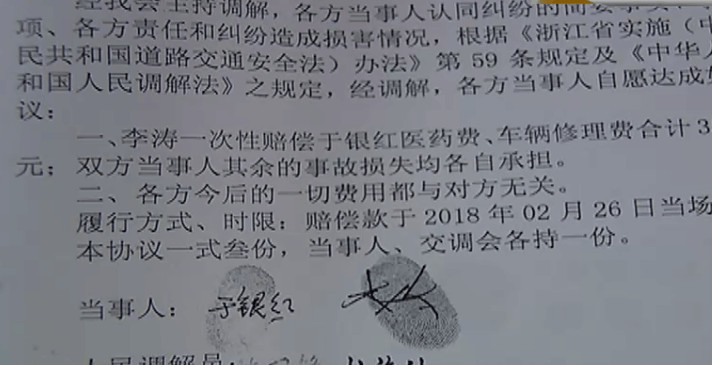 经我会主持调解，各方当事人认同纠纷的简要事实、
项、各方责任和纠纷造成损害情况，根据《浙江省实施（中
民共和国道路交通安全法）办法》第 59 条规定及《中华人
和国人民调解法》之规定，经调解，各方当事人自愿达成如
议：
一、李涛一次性赔偿于银红医药费、车辆修理费合计 3
元；双方当事人其余的事故损失均各自承担。
二、各方今后的一切费用都与对方无关。
履行方式、时限：赔偿款于 2018 年 02 月 26 日当场
本协议一式叁份，当事人、交调会各持一份。
当事人： 于银红
人民调解员：